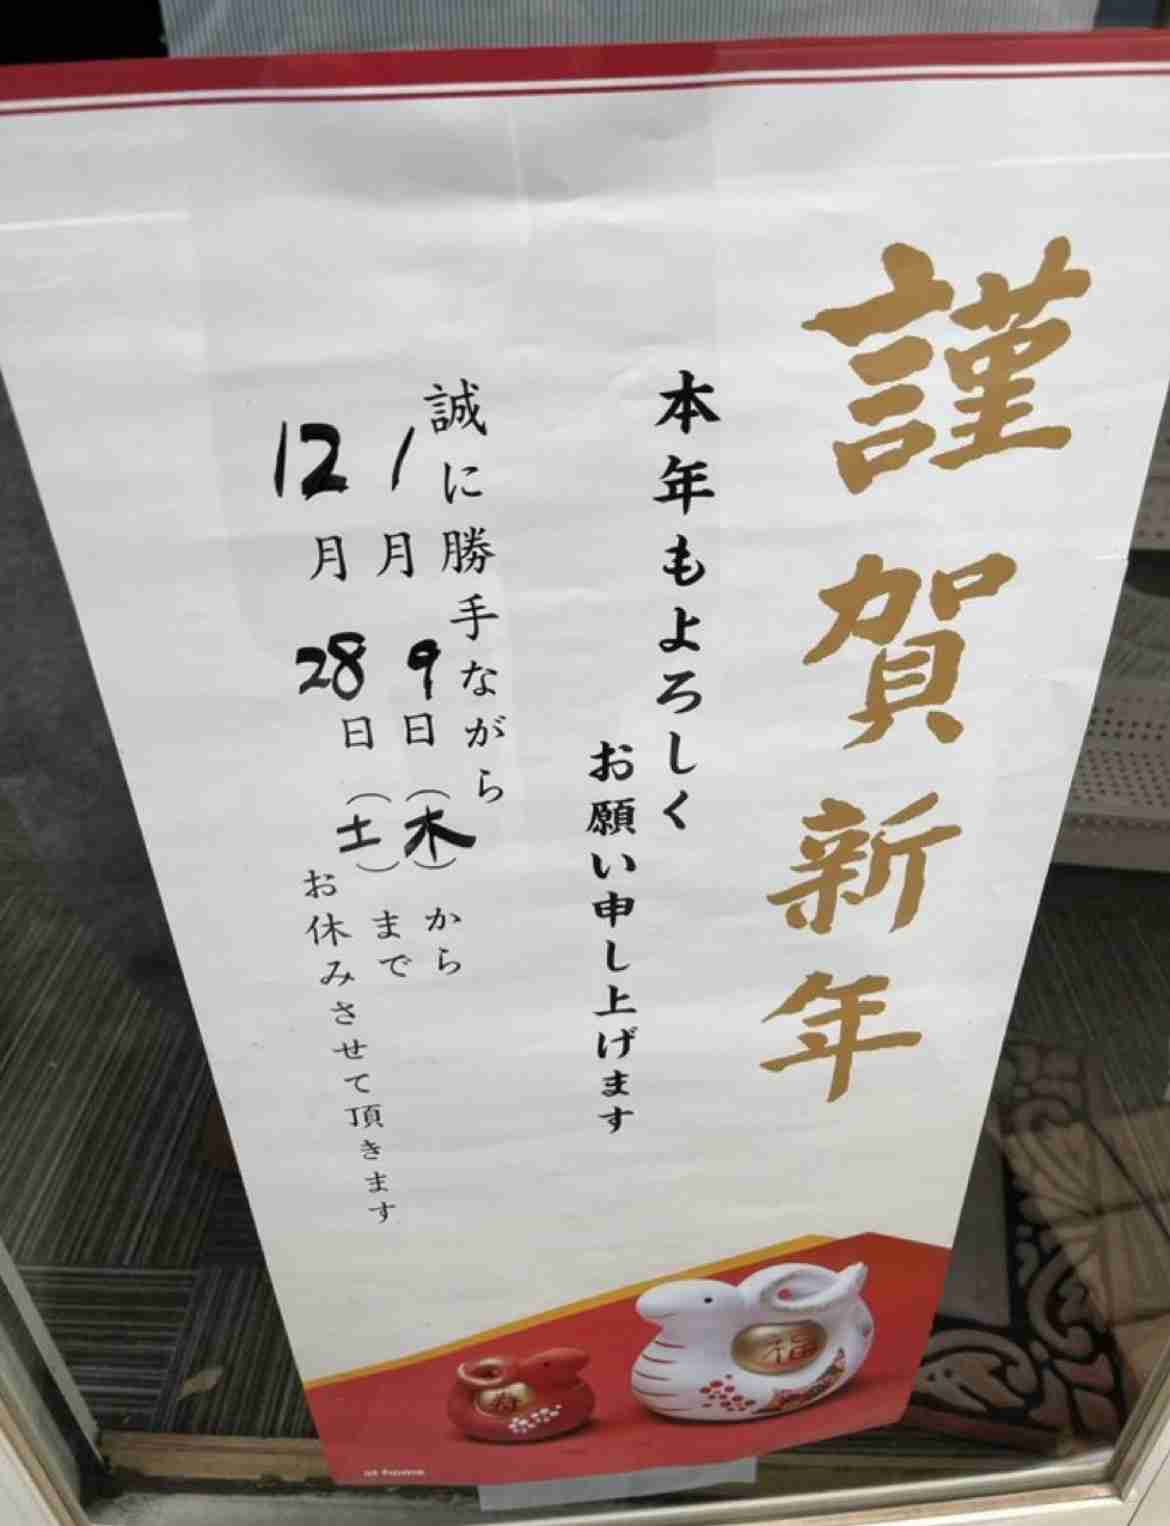 謹賀新年
本年もよろしく
お願い申し上げます
誠に勝手ながら
1月9日(木)から
12月28日(土)まで
お休みさせて頂きます
福
寿
at home